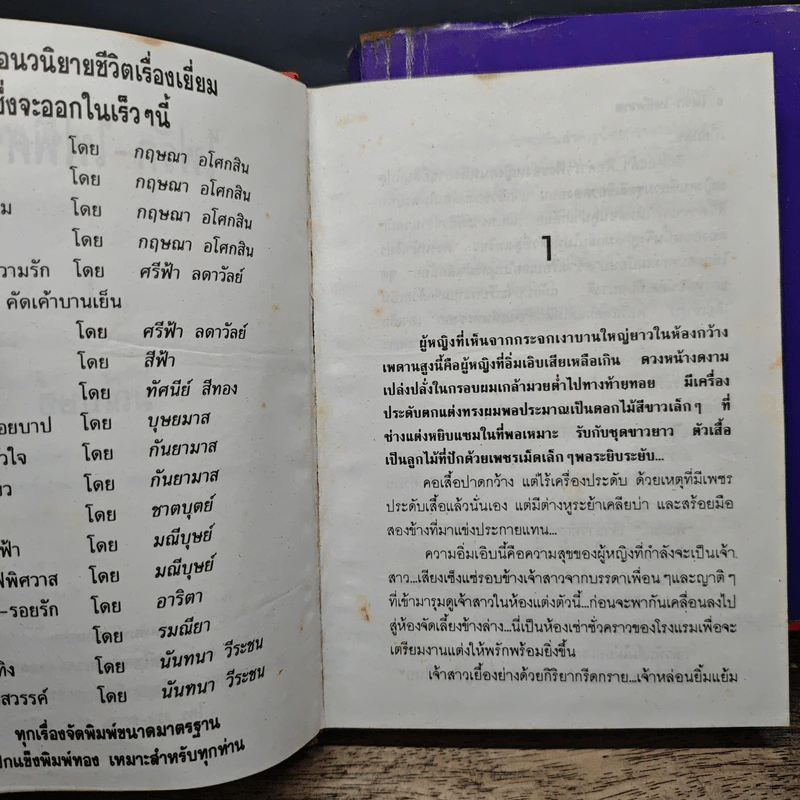 อนวนิยายชีวิตเรื่องเยี่ยม
ซึ่งจะออกในเร็วๆนี้
โดย กฤษณา อโศกสิน
โดย กฤษณา อโศกสิน
ม โดย กฤษณา อโศกสิน
โดย กฤษณา อโศกสิน
วามรัก โดย ศรีฟ้า ลดาวัลย์
คัดเค้าบานเย็น
โดย ศรีฟ้า ลดาวัลย์
โดย สีฟ้า
โดย ทัศนีย์ สีทอง
อยบาป โดย บุษยมาส
ัวใจ โดย กันยามาส
ยว โดย กันยามาส
โดย ชาตบุตย์
ฟ้า โดย มณีบุษย์
พิศวาส โดย มณีบุษย์
-รอยรัก โดย อาริตา
โดย รมณียา
ทิง โดย นันทนา วีระชน
สวรรค์ โดย นันทนา วีระชน
ทุกเรื่องจัดพิมพ์ขนาดมาตรฐาน
ปกแข็งพิมพ์ทอง เหมาะสำหรับทุกท่าน
1
ผู้หญิงที่เห็นจากกระจกเงาบานใหญ่ยาวในห้องกว้าง
เพดานสูงนี้คือผู้หญิงที่อิ่มเอิบเสียเหลือเกิน ดวงหน้างดงาม
เปล่งปลั่งในกรอบผมเกล้ามวยต่ำไปทางท้ายทอย มีเครื่อง
ประดับตกแต่งทรงผมพอประมาณเป็นดอกไม้สีขาวเล็กๆ ที่
ช่างแต่งหยิบแซมในที่พอเหมาะ รับกับชุดขาวยาว ตัวเสื้อ
เป็นลูกไม้ที่ปักด้วยเพชรเม็ดเล็กๆพอระยิบระยับ...
คอเสื้อปาดกว้าง แต่ไร้เครื่องประดับ ด้วยเหตุที่มีเพชร
ประดับเสื้อแล้วนั่นเอง แต่มีต่างหูระย้าเคลียบ่า และสร้อยมือ
สองข้างที่มาแข่งประกายแทน...
ความอิ่มเอิบนี้คือความสุขของผู้หญิงที่กำลังจะเป็นเจ้า
สาว...เสียงเซ็งแซ่รอบข้างเจ้าสาวจากบรรดาเพื่อนๆและญาติๆ
ที่เข้ามารุมดูเจ้าสาวในห้องแต่งตัวนี้...ก่อนจะพากันเคลื่อนลงไป
สู่ห้องจัดเลี้ยงข้างล่าง...นี่เป็นห้องเช่าชั่วคราวของโรงแรมเพื่อจะ
เตรียมงานแต่งให้พรักพร้อมยิ่งขึ้น
เจ้าสาวเยื้องย่างด้วยกิริยากรีดกราย...เจ้าหล่อนยิ้มแย้ม